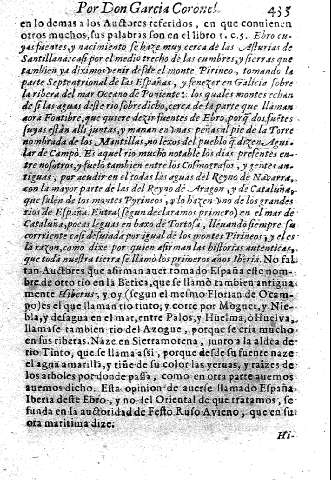 Por Don Garcia Coronel. 435
en lo demas a los Auctores referidos, en que conuienen
otros muchos, sus palabras son en el libro 1. c. 5. Ebro cu-
yas fuentes, y nacimiento se haze muy cerca de las Asturias de
Santillana: casi por el medio trecho de las cumbres, y sierras que
tambien ya diximos venir desde el monte Pirineo, tomando la
parte Septentrional de las Españas, y fenezer en Galicia sobre
la ribera del mar Oceano de Poniente: los quales montes echan
de si las aguas deste rio sobredicho, cerca de la parte que llaman
aora Fontibre, que quiere dezir fuentes de Ebro, porq̃ dos fuẽtes
suyas estàn alli juntas, y manan en vnas peñas al pie de la Torre
nombrada de los Mantillas, no lexos del pueblo q̃ dizen Agui-
lar de Campò. Es aquel rio mucho notable los dias presentes en-
tre nosotros, y fuelo tambien entre los Cosmografos, y gentes an-
tiguas, por acudir en el todas las aguas del Reyno de Nauarra,
con la mayor parte de las del Reyno de Aragon, y de Cataluña,
que salen de los montes Pyrineos, y lo hazen vno de los grandes
rios de España. Entra (segun declaramos primero) en el mar de
Cataluña, pocas leguas en baxo de Tortosa, lleuando siempre su
corriente casi desuiada por igual de los montes Pirineos, y èl es
la razon, como dixe por quien afirman las historias autenticas,
que toda nuestra tierra se llamò los primeros años Iberia. No fal-
tan Auctores que afirman auer tomado España este nom-
bre de otro rio en la Betica, que se llamò tambien antigua
mente Hiberus, y oy (segun el mesmo Florian de Ocam-
po) es el que llaman rio tinto, y corre por Moguer, y Nie-
bla, y desagua en el mar, entre Palos, y Huelma, ò Huelva.
llamase tambien rio del Azogue, porque se cria mucho
en sus riberas. Naze en Sierramorena, junto a la aldea de
rio Tinto, que se llama assi, porque desde su fuente naze
el agua amarilla, y tiñe de su color las yeruas, y raizes de
los arboles por donde passa, como en otra parte auemos
auemos dicho. Esta opinion de auerse llamado España
Iberia deste Ebro, y no del Oriental de que tratamos, se
funda en la auctoridad de Festo Ruso Avieno, que en su
ora maritima dize.
Hi-